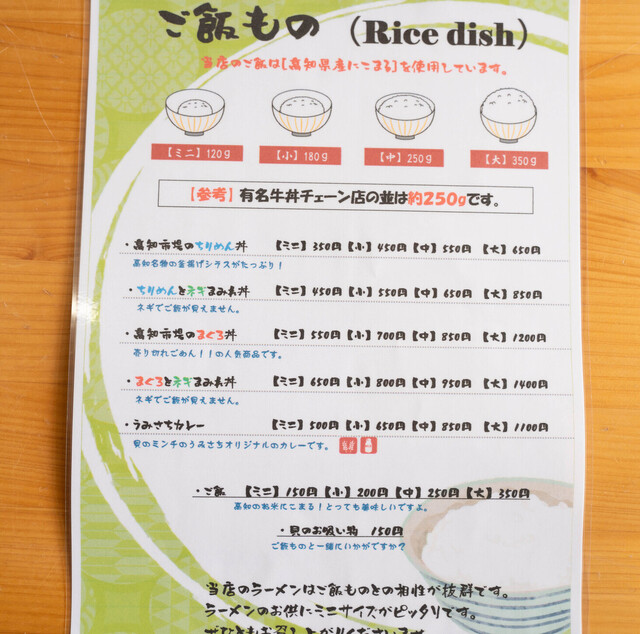 ご飯もの （Rice dish）
当店のご飯は[高知県産にこまる]を使用しています。
【ミニ】120g 【小】180g 【中】250g 【大】350g
【参考】有名牛丼チェーン店の並は約250gです。
・高知市場のちりめん丼 【ミニ】350円【小】450円【中】550円 【大】650円
高知名物の釜揚げシラスがたっぷり！
・ちりめんとネギまみれ丼 【ミニ】450円【小】550円【中】650円 【大】850円
ネギでご飯が見えません。
・高知市場のまぐろ丼 【ミニ】550円【小】700円【中】850円 【大】1200円
売り切れごめん！！の人気商品です。
・まぐろとネギまみれ丼 【ミニ】650円【小】800円【中】950円 【大】1400円
ネギでご飯が見えません。
・うみさちカレー 【ミニ】500円【小】650円【中】850円 【大】1100円
貝のミンチのうみさちオリジナルのカレーです。
・ご飯 【ミニ】150円【小】200円【中】250円【大】350円
高知のお米にこまる！とっても美味しいですよ。
・貝のお吸い物 150円
ご飯ものと一緒にいかがですか？
当店のラーメンはご飯ものとの相性が抜群です。
ラーメンのお供にミニサイズがピッタリです。
ぜひともお召し上がりくださいませ